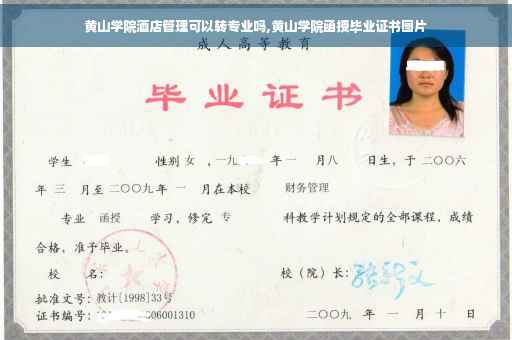 黄山学院酒店管理可以转专业吗,黄山学院函授毕业证书图片
成人高等教育
毕业证书
学生 性别 女 ,一九 年一 月八 日生，于二〇〇六
年 三 月至二〇〇九年 一 月在本校 财务管理
专业 函授 学习，修完 专 科教学计划规定的全部课程，成绩
合格，准予毕业。
校 名： 校（院）长：
批准文号：教计[1998]33号
证书编号： 06001310 二〇〇九 年 一 月 十 日